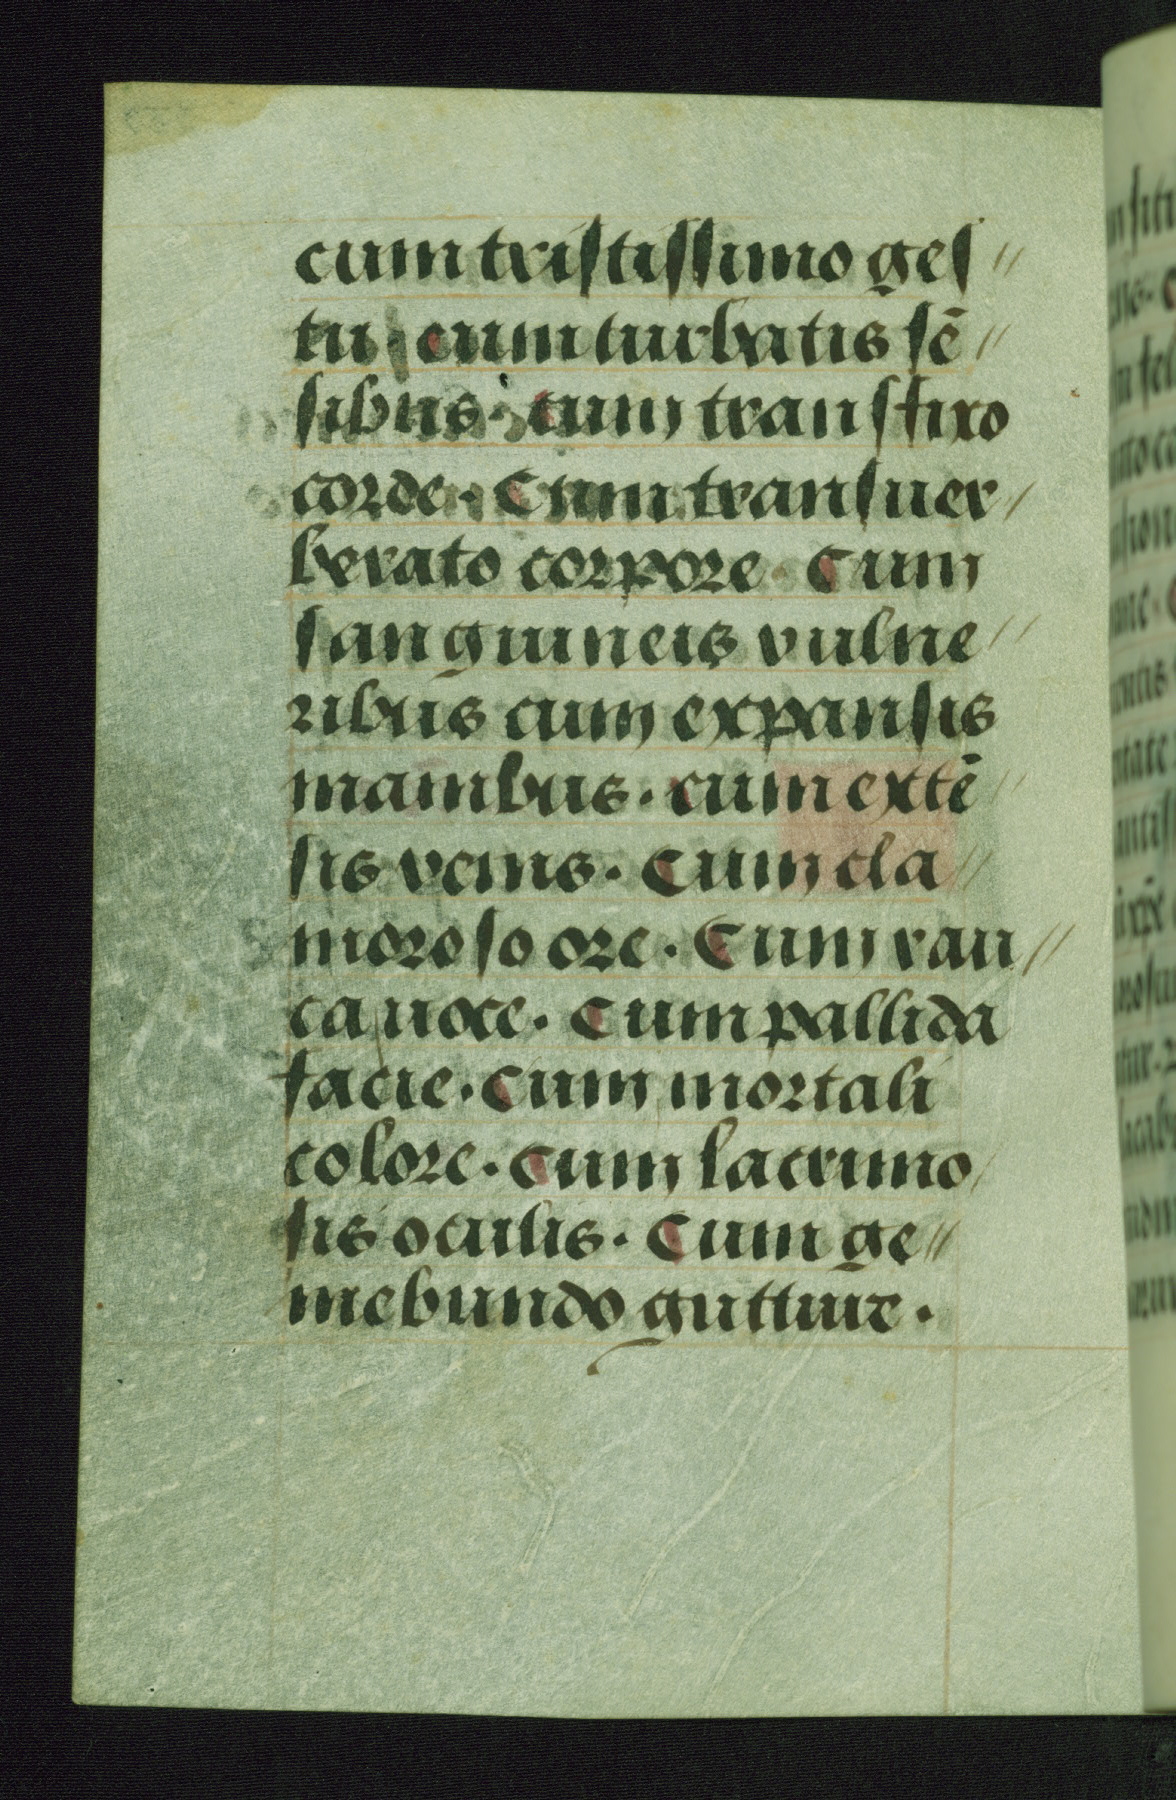 cum tristissimo ges//
tu. cum turbatis sē//
sibus. cum transfixo
corde. Cum transuer/
berato corpore. Cum
sanguineis vulne//
ribus cum expansis
manibus. cum extē//
sis venis. Cum cla//
moroso ore. Cum rau//
ca uoce. Cum pallida
facie. Cum mortali
colore. Cum lacrimo/
sis oculis. Cum ge//
mebundo gutture.